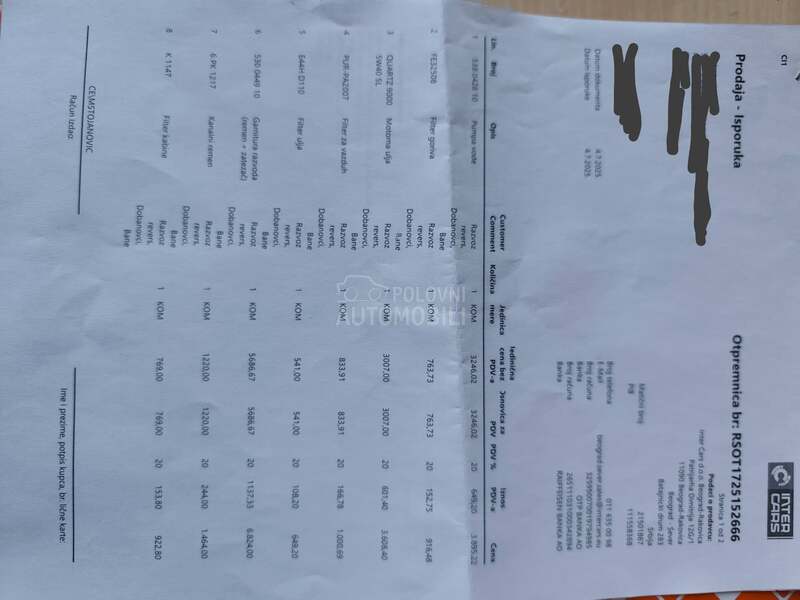 CI1
INTER CARS
Prodaja - Isporuka
Otpremnica br: RSOT1725152666
Stranica 1 od 2
Podaci o prodavcu:
Inter Cars d.o.o. Beograd-Rakovica
Patrijarha Dimitrija 12G/1
11090 Beograd-Rakovica
Beograd - Sever
Batajnički drum 283
Srbija
Matični broj 21501867
PIB 111558368
Broj telefona 011 635 00 98
E-Mail
Broj računa
Banka OTP BANKA AD
Broj računa
Banka RAIFFEISEN BANKA AD
Datum dokumenta 4.7.2025
Datum isporuke 4.7.2025
Lin. Broj Opis Customer Comment Količina Jedinica mere Jedinična cena bez PDV-a Osnovica za PDV PDV % Iznos PDV-a Cena
1 530 0428 10 Pumpa vode Razvoz revers, Dobanovci, Bane 1 KOM 3246,02 3246,02 20 649,20 3.895,22
2 FE32508 Filter goriva Razvoz revers, Dobanovci, Bane 1 KOM 763,73 763,73 20 152,75 916,48
3 QUARTZ 9000 5W40 5L Motorna ulja Razvoz revers, Dobanovci, Bane 1 KOM 3007,00 3007,00 20 601,40 3.608,40
4 PUR-PA2007 Filter za vazduh Razvoz revers, Dobanovci, Bane 1 KOM 833,91 833,91 20 166,78 1.000,69
5 E44H D110 Filter ulja Razvoz revers, Dobanovci, Bane 1 KOM 541,00 541,00 20 108,20 649,20
6 530 0449 10 Garnitura razvoda (remen + zatezač) Razvoz revers, Dobanovci, Bane 1 KOM 5686,67 5686,67 20 1137,33 6.824,00
7 6 PK 1217 Kanalni remen Razvoz revers, Dobanovci, Bane 1 KOM 1220,00 1220,00 20 244,00 1.464,00
8 K 1147 Filter kabine Razvoz revers, Dobanovci, Bane 1 KOM 769,00 769,00 20 153,80 922,80
CE\MSTOJANOVIC
Račun izdao:
Ime i prezime, potpis kupca, br. lične karte:
POLOVNI
AUTOMOBILI